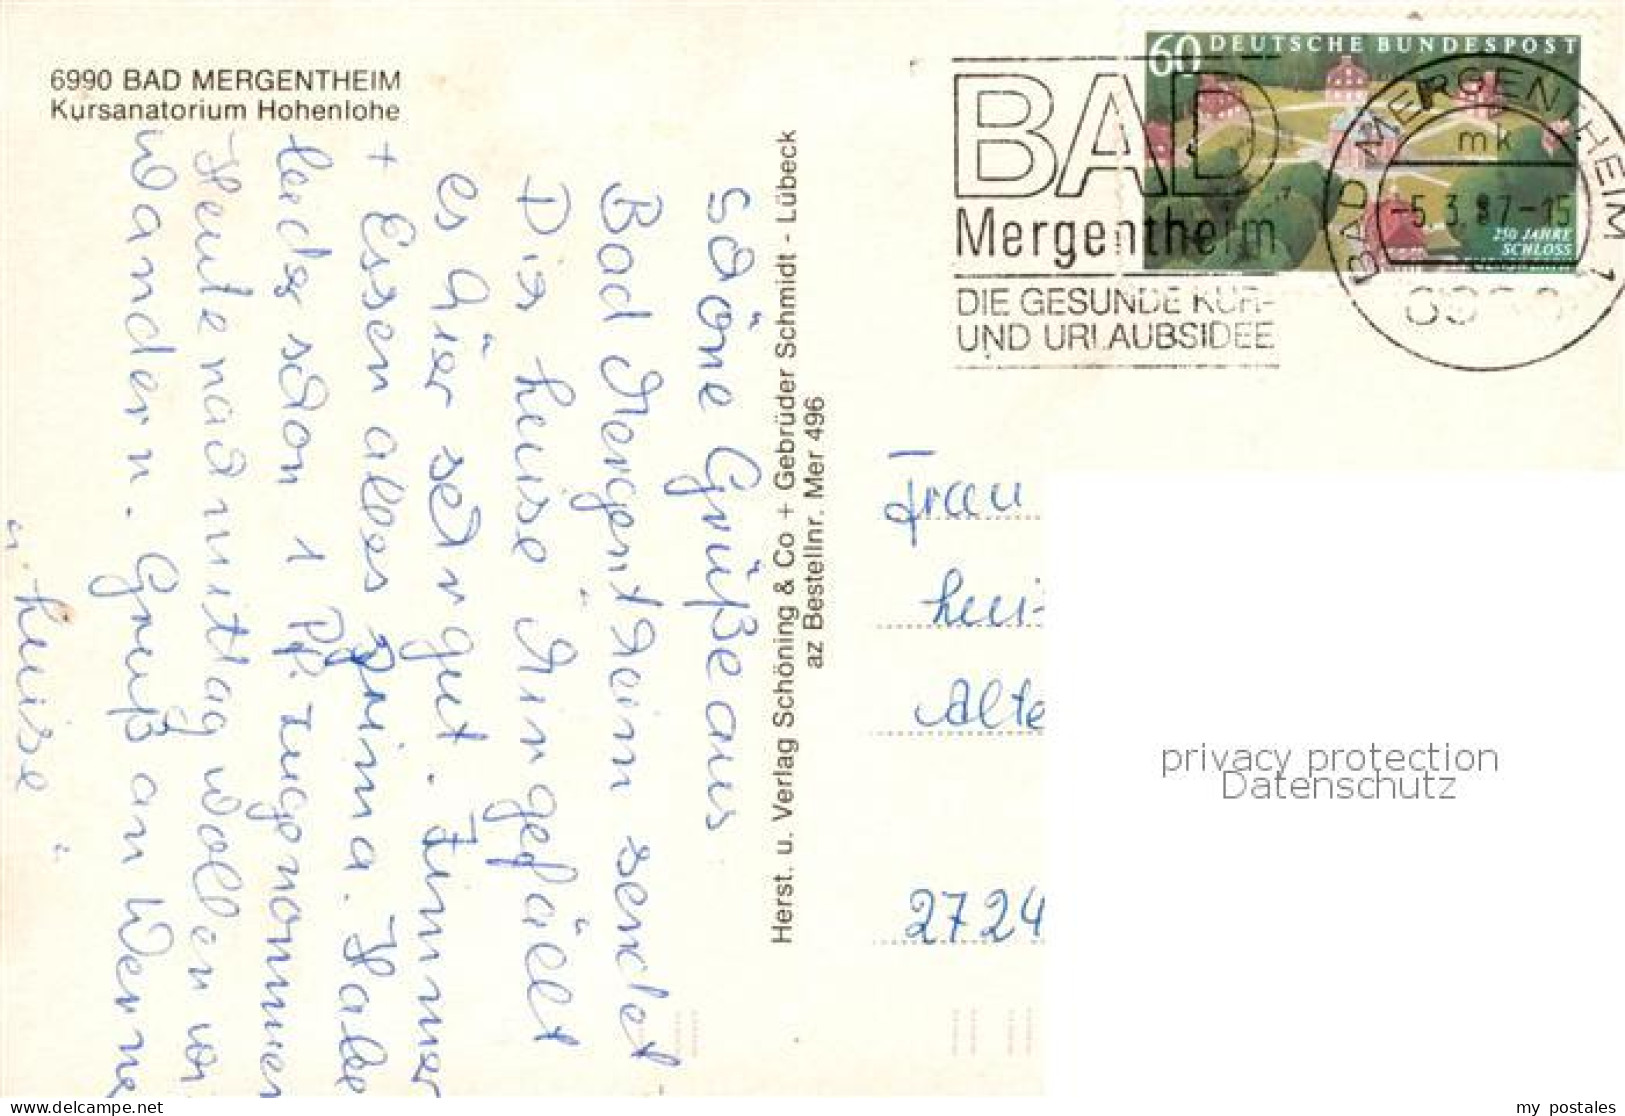 6990 BAD MERGENTHEIM
Kursanatorium Hohenlohe
60 DEUTSCHE BUNDESPOST
250 JAHRE
SCHLOSS
BAD
Mergentheim
DIE GESUNDE KUR-
UND URLAUBSIDEE
BAD MERGENTHEIM 1
mk
-5.3.87-15
6990
Schöne Grüße aus
Bad Mergentheim sendet
Dir Luise Mir gefällt
es hier sehr gut. Zimmer
+ Essen alles prima. Habe
leider schon 1 Pf. zugenommen
Heute nachmittag wollen wi
wandern. Gruß an Werne
Luise
Herst. u. Verlag Schöning & Co + Gebrüder Schmidt - Lübeck
az Bestellnr. Mer 496
Frau
Alte
2724
privacy protection
Datenschutz
www.delcampe.net
my_postales